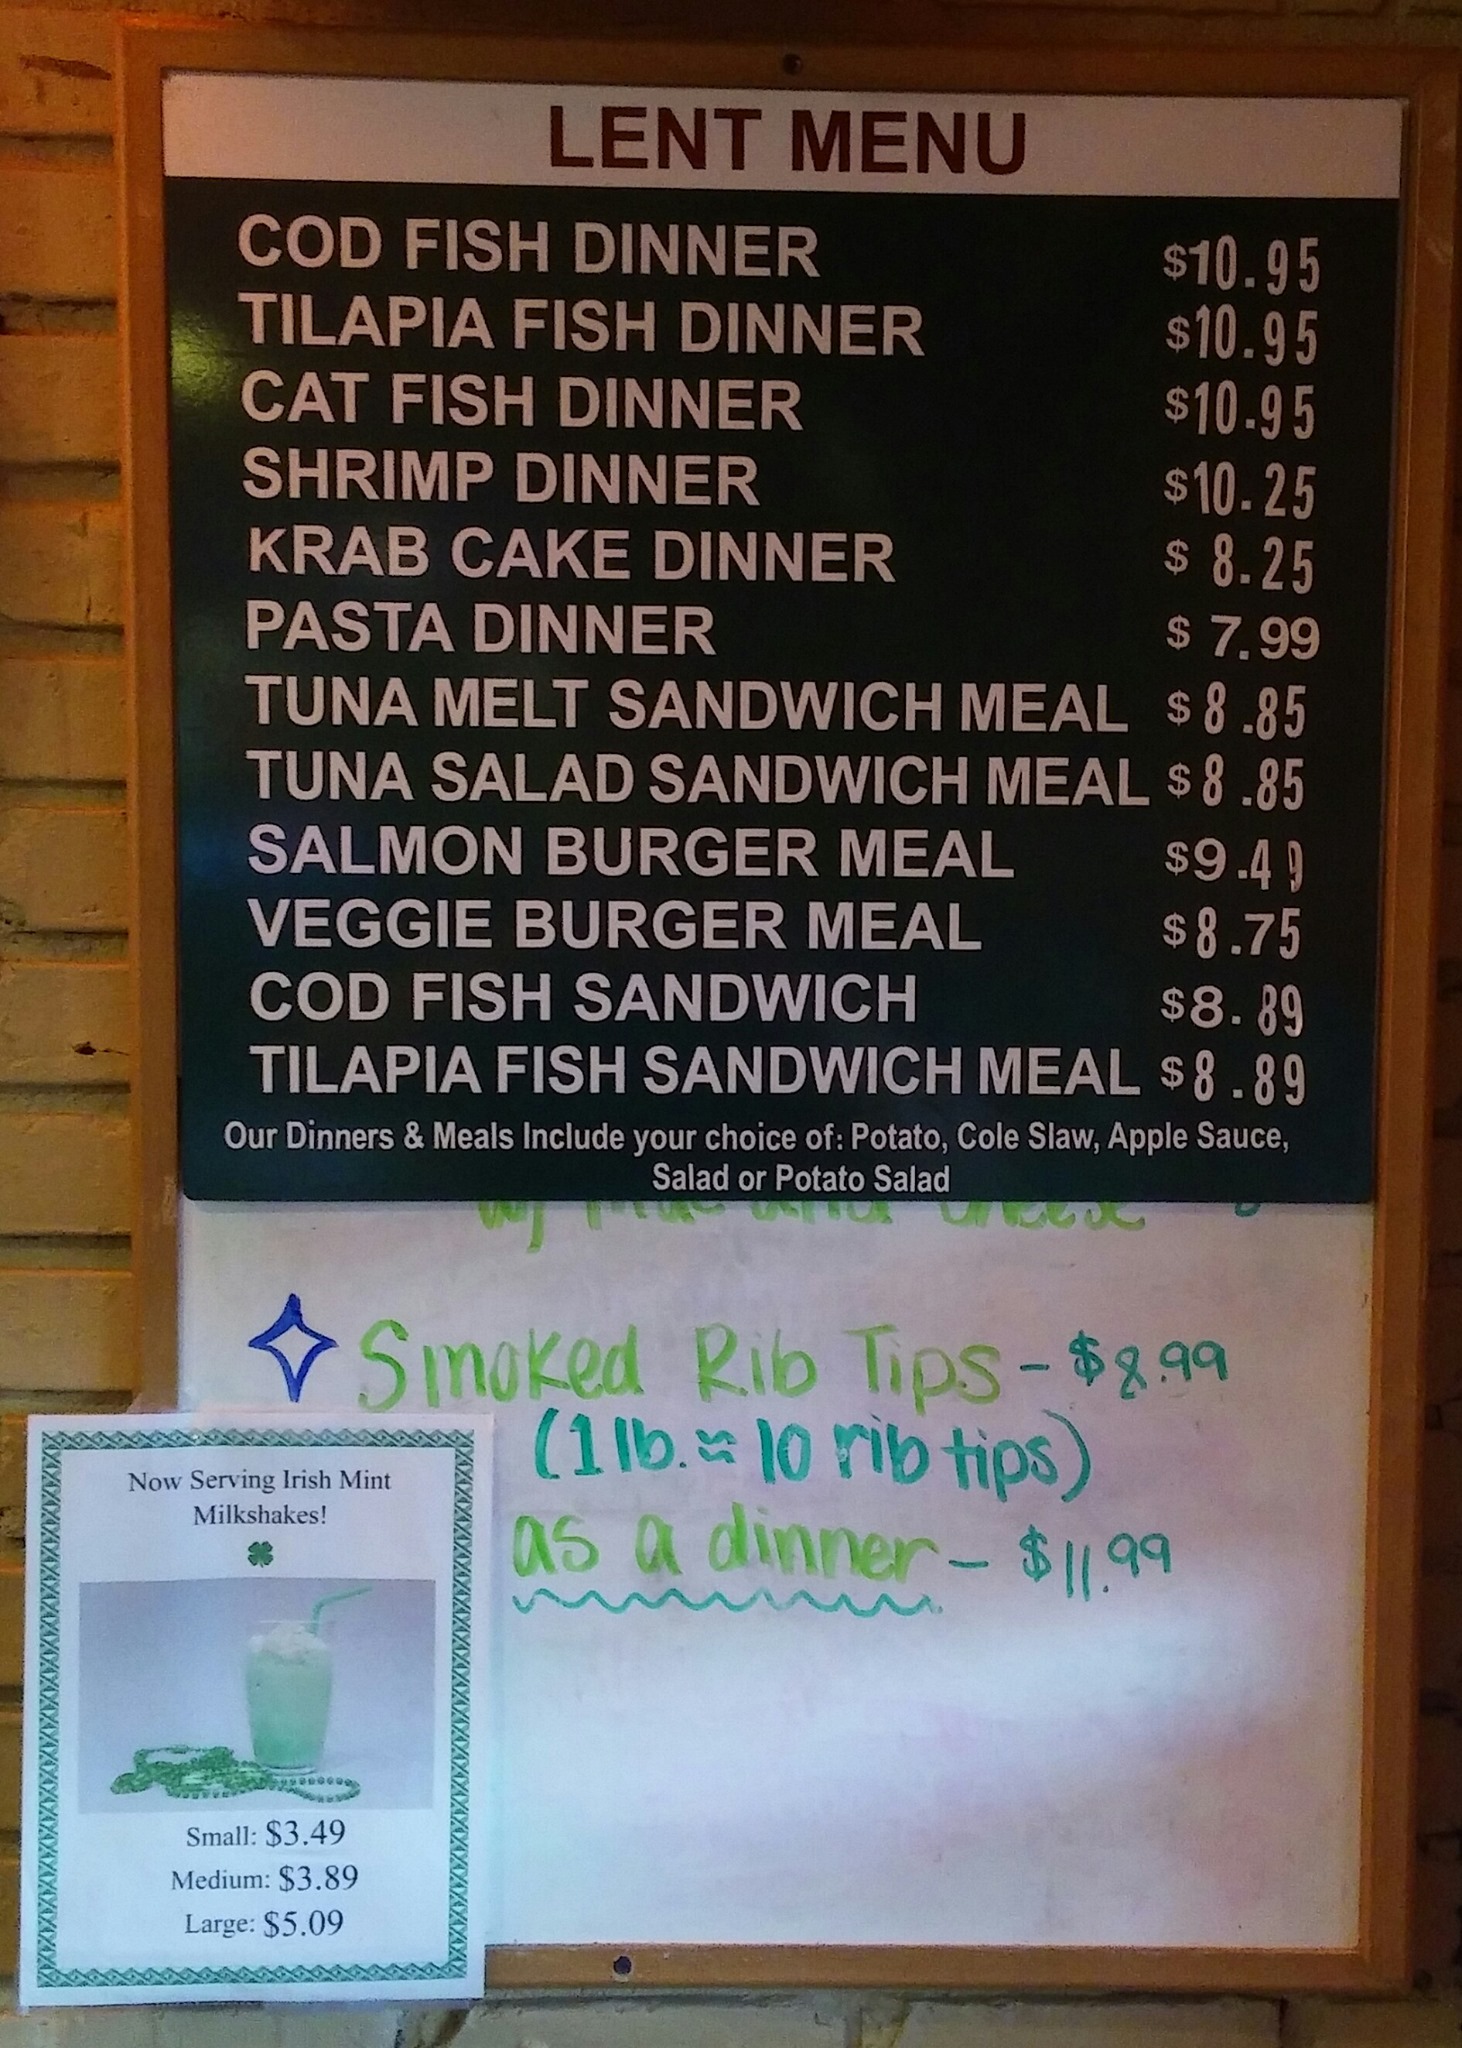 LENT MENU
COD FISH DINNER $10.95
TILAPIA FISH DINNER $10.95
CAT FISH DINNER $10.95
SHRIMP DINNER $10.25
KRAB CAKE DINNER $ 8.25
PASTA DINNER $ 7.99
TUNA MELT SANDWICH MEAL $8.85
TUNA SALAD SANDWICH MEAL $8.85
SALMON BURGER MEAL $9.49
VEGGIE BURGER MEAL $8.75
COD FISH SANDWICH $8.89
TILAPIA FISH SANDWICH MEAL $8.89
Our Dinners & Meals Include your choice of: Potato, Cole Slaw, Apple Sauce,
Salad or Potato Salad
w/ mac and cheese
Smoked Rib Tips - $8.99
(1 lb. ≈ 10 rib tips)
as a dinner - $11.99
Now Serving Irish Mint
Milkshakes!
Small: $3.49
Medium: $3.89
Large: $5.09